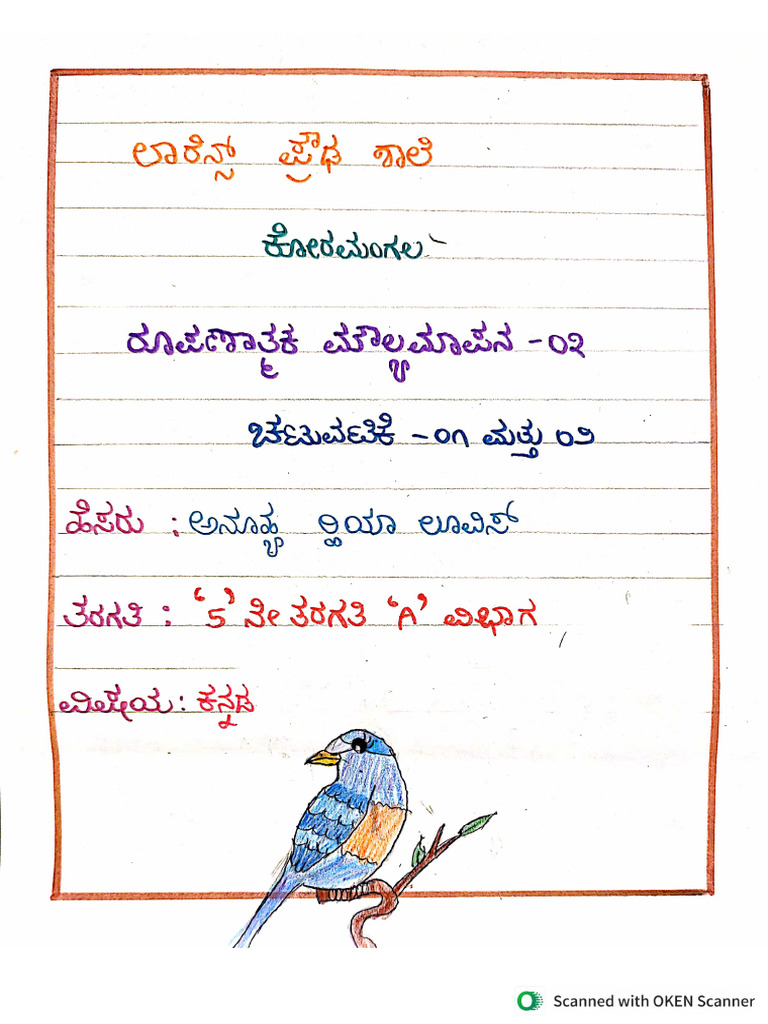 ಲಾರೆನ್ಸ್ ಪ್ರೌಢ ಶಾಲೆ
ಕೋರಮಂಗಲ
ರೂಪಣಾತ್ಮಕ ಮೌಲ್ಯಮಾಪನ -೦೩
ಚಟುವಟಿಕೆ -೦೧ ಮತ್ತು ೦೨
ಹೆಸರು : ಅನೂಹ್ಯ ಲೂವಿಸ್
ತರಗತಿ : '5' ನೇ ತರಗತಿ 'ಗಿ' ವಿಭಾಗ
ವಿಷಯ: ಕನ್ನಡ
Scanned with OKEN Scanner